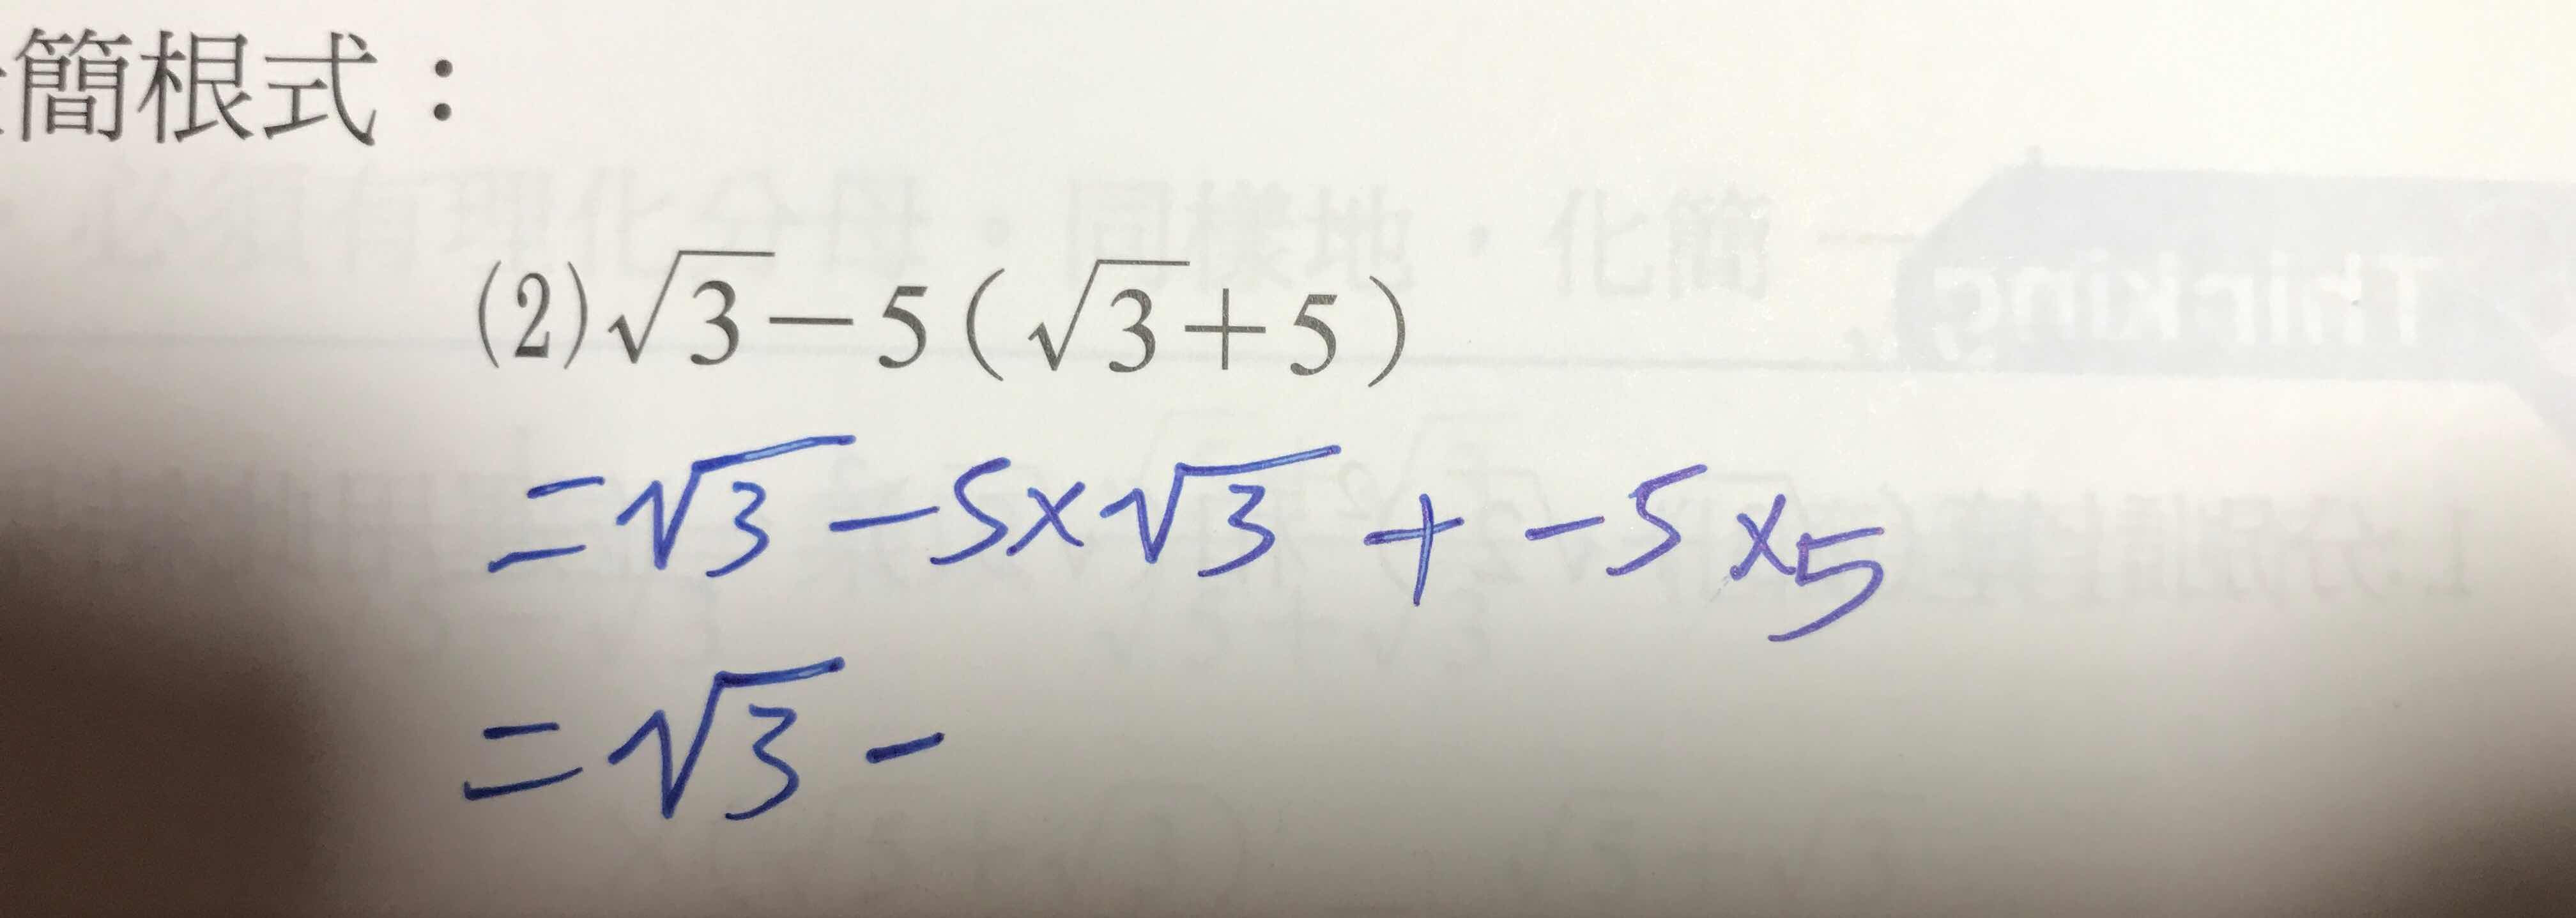 簡根式：
(2)√3－5(√3＋5)
=√3-5×√3+-5×5
=√3-